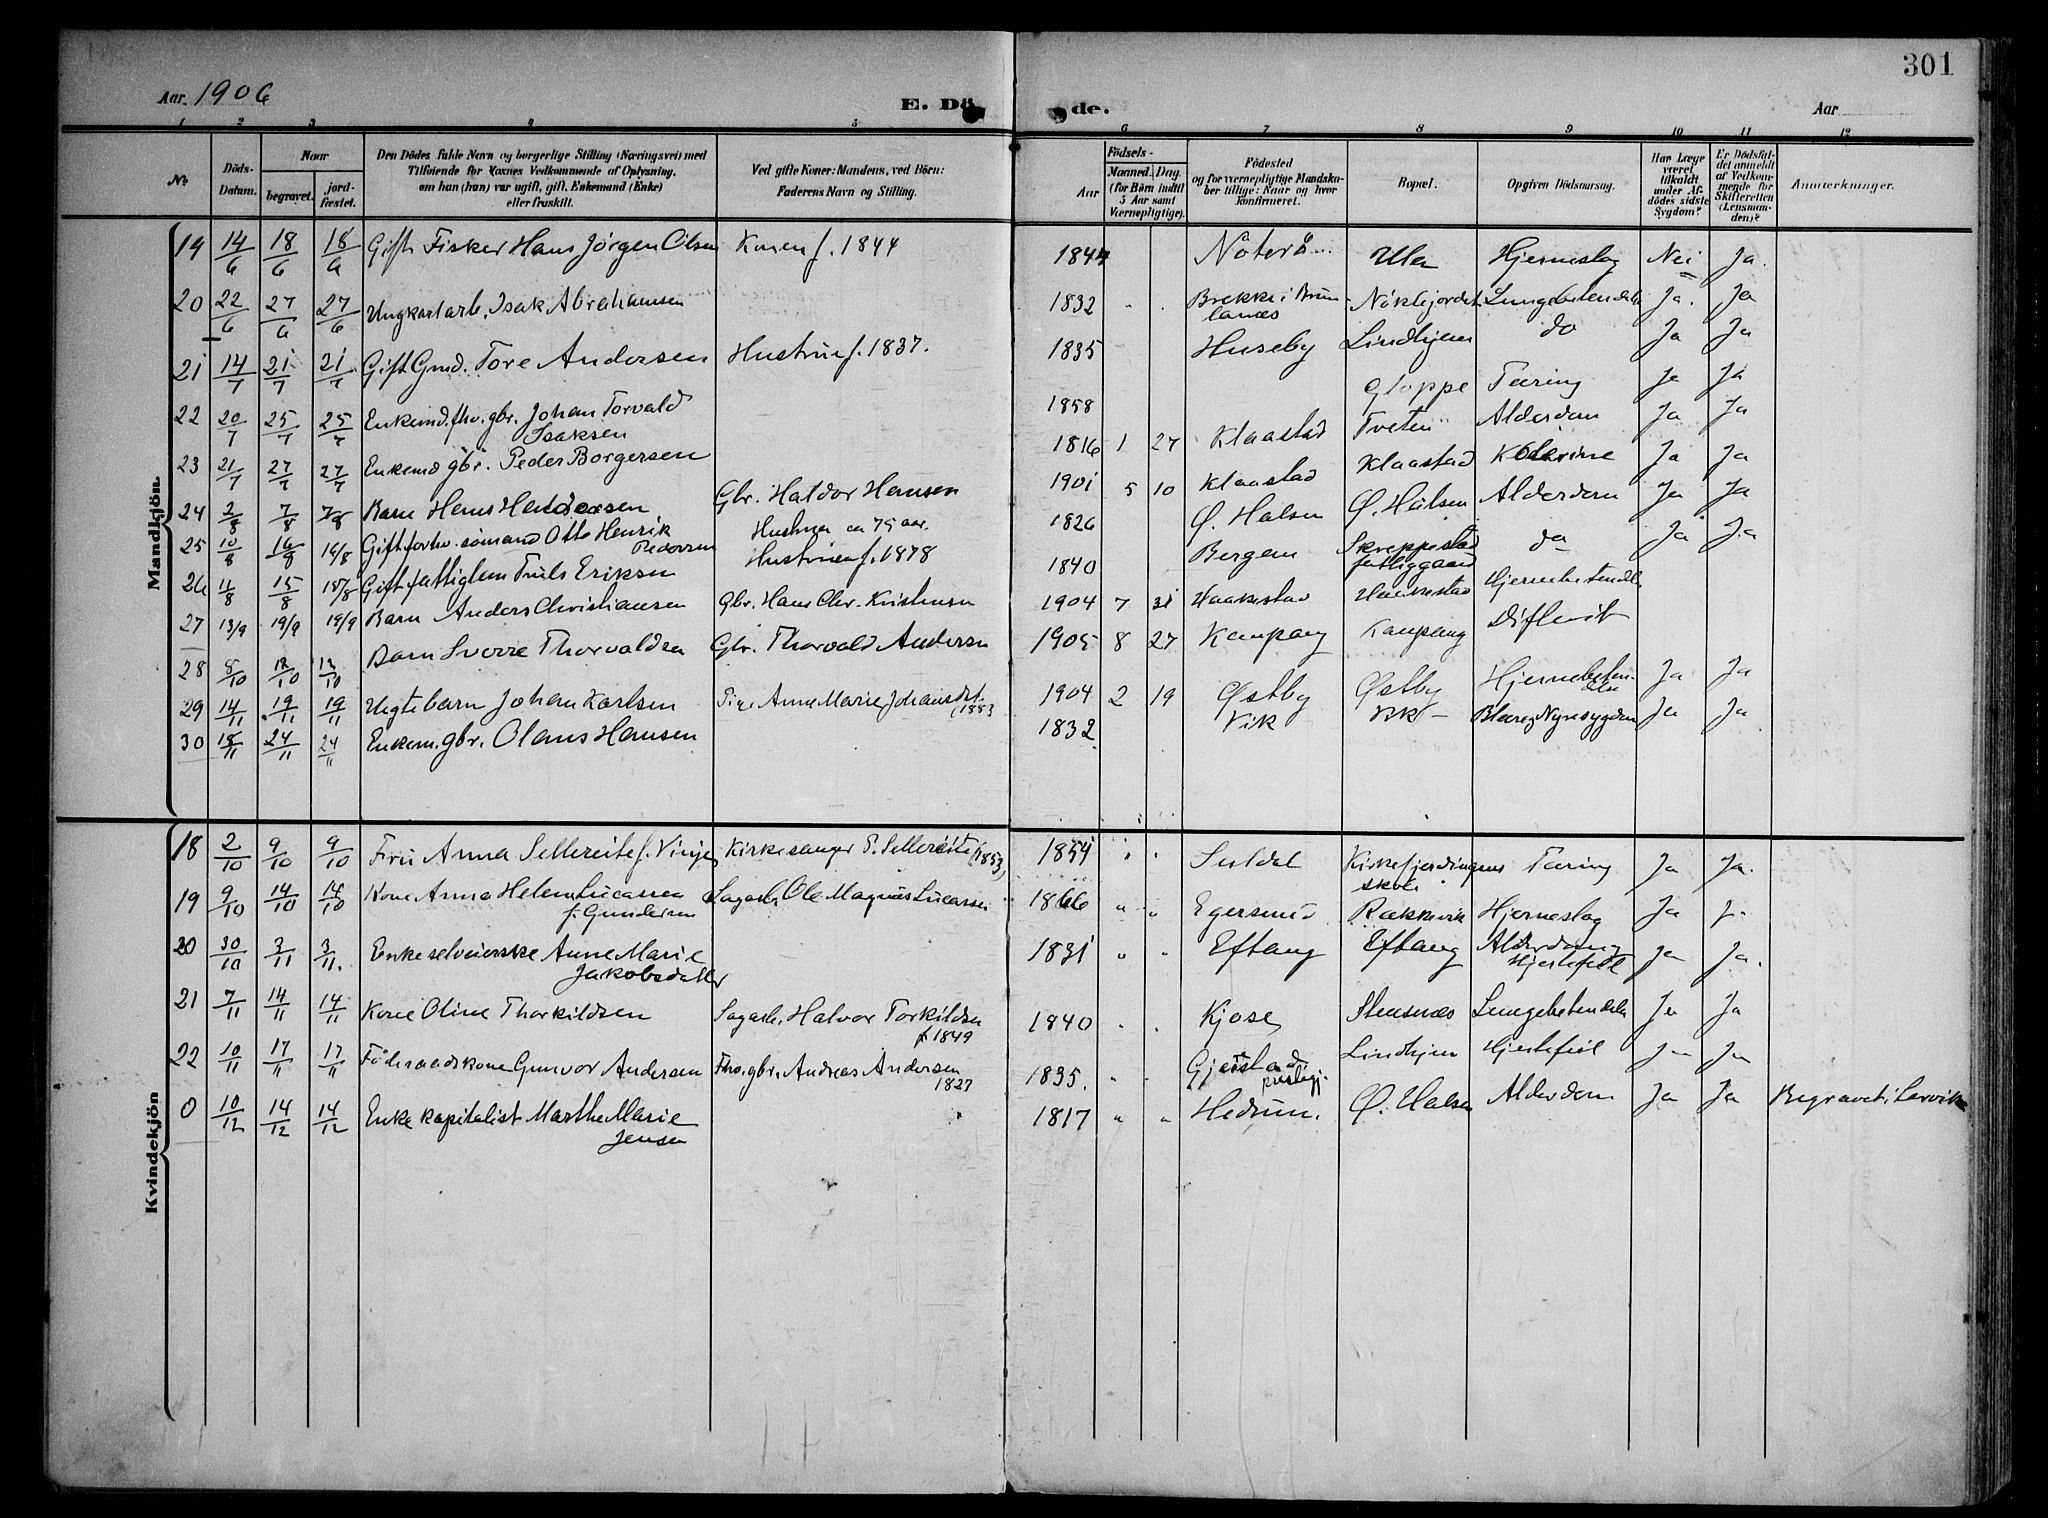 301
Aar 1906
E. Dö
de.
Aar
1 2 3 4 5 6 7 8 9 10 11 12
No.
Döds-Datum.
Naar
begravet.
jord-fæstet.
Den Dödes fulde Navn og borgerlige Stilling (Næringsvei) med
Tilföiende for Voxnes Vedkommende af Oplysning,
om han (hun) var ugift, gift, Enkemand (Enke)
eller fraskilt.
Ved gifte Koner: Mandens, ved Börn:
Faderens Navn og Stilling.
Födsels-
Aar
Maaned. Dag.
(for Börn indtil
5 Aar samt
Værnepligtige).
Födested
og for værnepligtige Mandska-
ber tillige: Naar og hvor
Konfirmeret.
Bopæl.
Opgiven Dödsaarsag.
Har Læge
været
tilkaldt
under Af-
dödes sidste
Sygdom?
Er Dödsfal-
det anmeldt
af Vedkom-
mende for
Skifteretten
(Lensman-
den)?
Anmærkninger.
Mandkjön.
19 14/6 18/6 18/6 Gift Fisker Hans Jörgen Olsen Konen f. 1844 1844 Nøterö Ula Hjerneslag Nei Ja.
20 22/6 27/6 27/6 Ungkarl arb. Isak Abrahamsen 1832 " . Brekke i Brun-
lanæs Nökkefjordet Lungebetændelse Ja. Ja
21 14/7 21/7 21/7 Gift Gmd. Tore Andersen Hustrue f. 1837. 1835 Huseby Lindhjem do Ja Ja
22 20/7 25/7 25/7 Enkemd. fhv. gbr. Johan Torvald
Isaksen 1858 Gloppe Tæring Ja Ja
23 21/7 27/7 27/7 Enkemd gbr. Peder Borgersen 1816 1 27 Klaastad Tveten Alderdom Ja Ja
24 2/8 7/8 7/8 Barn Hans Haldorsen Gbr. Haldor Hansen 1901 5 10 Klaastad Klaastad Kolerine Ja Ja
25 10/8 16/8 16/8 Gift forhv. sömand Otto Henrik
Pedersen Hustruen ca 75 aar. 1826 Ø. Halsen Ø. Halsen Alderdom Ja Ja
26 11/8 15/8 15/8 Gift fattiglem Truls Eriksen Hustruen f. 1878 1840 Bergen Skreppestad
fattiggaard do Ja Ja
27 13/9 19/9 19/9 Barn Anders Christiansen Gbr. Hans Chr. Kristensen 1904 7 31 Haakestad Haakestad Hjernebetændelse
28 8/10 12/10 12/10 Barn Sverre Thorvaldsen Gbr. Thorvald Andersen 1905 8 27 Kaupang Kaupang Difterit
29 14/11 19/11 19/11 Uegte barn Johan Karlsen Pige Anne Marie Johansdt.
1883 1904 2 19 Østby Østby Hjernebeten-
delse Ja Ja
30 18/11 24/11 24/11 Enkem. gbr. Olaus Hansen 1832 Vik Vik Blære og Nyresygdom Ja Ja
Kvindekjön
18 2/10 9/10 9/10 Fru Anna Sellereite f. Vinje Kirkesanger T. Sellereite (1853) 1854 " " Suldal Kirkefjerdingens
skole Tæring Ja Ja.
19 9/10 14/10 14/10 Kone Anna Helene Lucassen
f. Gundersen Sagarb. Ole Magnus Lucassen 1866 " " Egersund Rækkevik Hjerneslag Ja J.
20 30/10 3/11 3/11. Enke selveierske Anne Marie
Jakobsdatter 1831 " " Eftang Eftang Alderdom og
Hjertefeil Ja Ja.
21 7/11 14/11 14/11 Kone Oline Thorkildsen Sagarb. Halvor Torkildsen
f 1849 1840 " " Kjose Stensnæs Lungebetændelse Ja Ja
22 10/11 17/11 17/11 Föderaadskone Gunvor Andersen Fhv. gbr. Andreas Andersen
1827 1835. " " Gjerstad
prestegj. Lindhjem Hjertefeil Ja Ja
0 10/12 14/12 14/12 Enke kapitalist Marthe Marie
Jensen 1817 " " Hedrum. Ø. Halsen Alderdom Ja Ja Begravet i Larvik